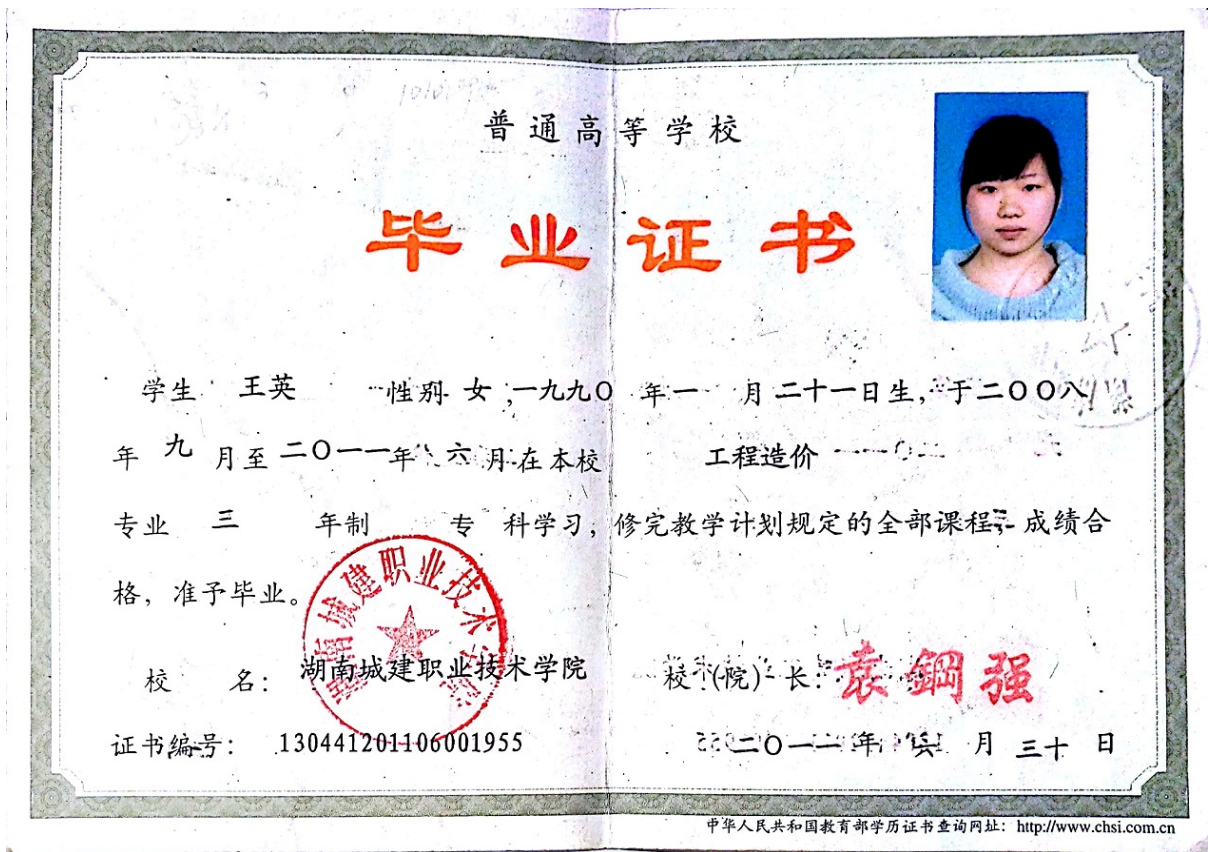 普通高等学校
毕业证书
学生 王英 性别 女,一九九〇 年 一 月 二十一日生, 于二〇〇八
年 九 月至 二〇一一年 六 月在本校 工程造价
专业 三 年制 专 科学习,修完教学计划规定的全部课程, 成绩合
格,准予毕业。
湖南城建职业技术学院
校 名: 湖南城建职业技术学院 校(院)长: 袁鋼强
证书编号: 130441201106001955 二〇一一年 六 月 三十 日
中华人民共和国教育部学历证书查询网址: http://www.chsi.com.cn